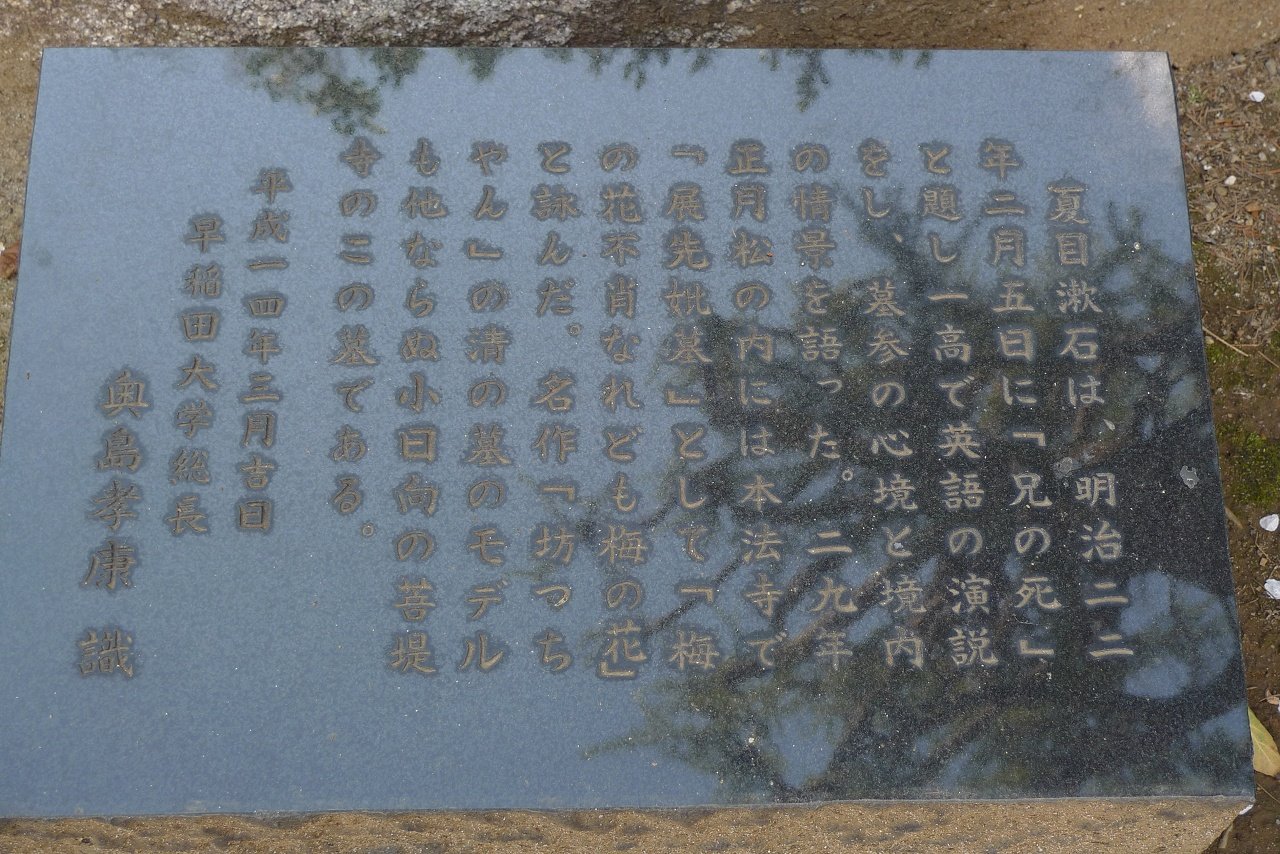 夏目漱石は、明治二二
年二月五日に「兄の死」
と題し一高で英語の演説
をし、墓参の心境と境内
の情景を語った。二九年
正月松の内には本法寺で
「展先妣墓」として「梅
の花不肖なれども梅の花」
と詠んだ。名作「坊っち
やん」の清の墓のモデル
も他ならぬ小日向の菩堤
寺のこの墓である。
平成一四年三月吉日
早稲田大学総長
奥島孝康 識